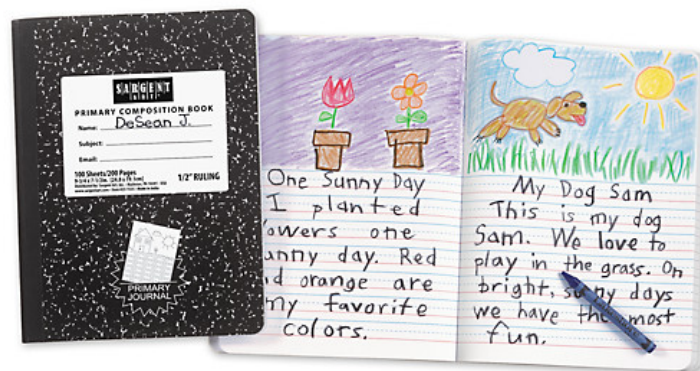 SARGENT
art
PRIMARY COMPOSITION BOOK
Name: DeSean J.
Subject:
Email:
100 Sheets/200 Pages
9-3/4 x 7-1/2in. (24.8 x 19.1cm)
www.sargentart.com
1/2" RULING
PRIMARY
JOURNAL
One Sunny Day
I planted
owers one
unny day. Red
d orange are
my favorite
colors.
My Dog Sam
This is my dog
Sam. We love to
play in the grass. On
bright, sunny days
we have the most
fun.